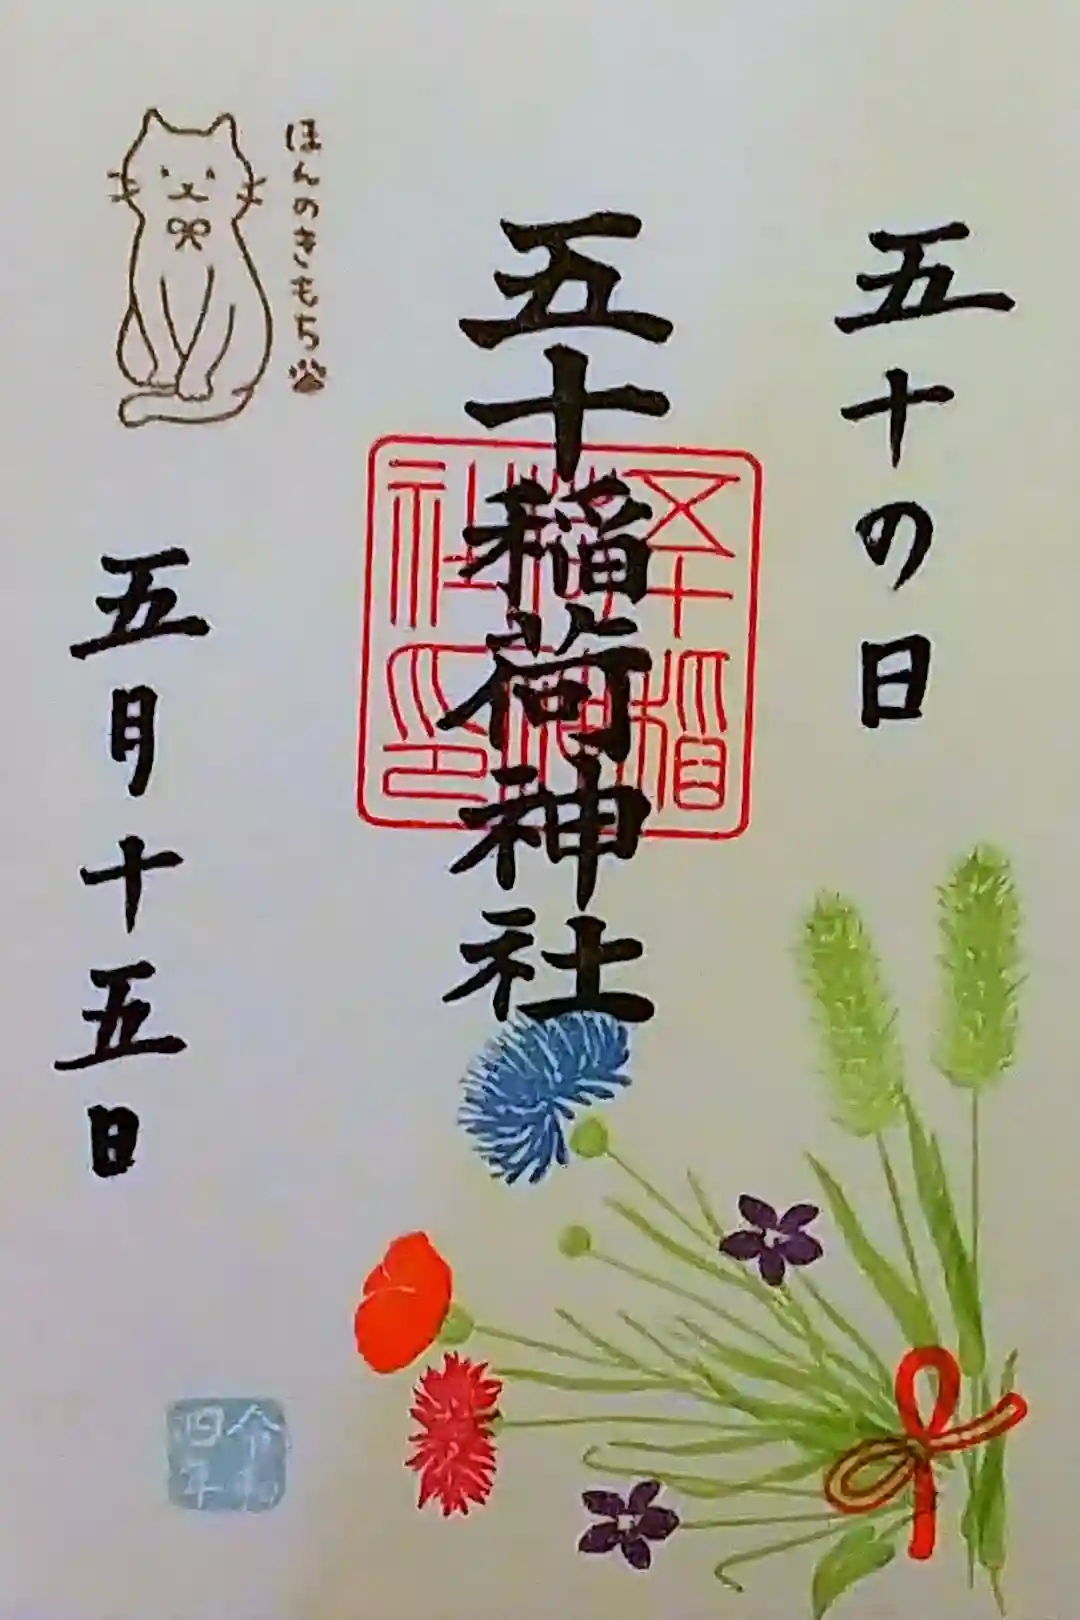 五十の日
五十稲荷神社
五十稲荷神社印
ほんのきもち
五月十五日
令和
四年